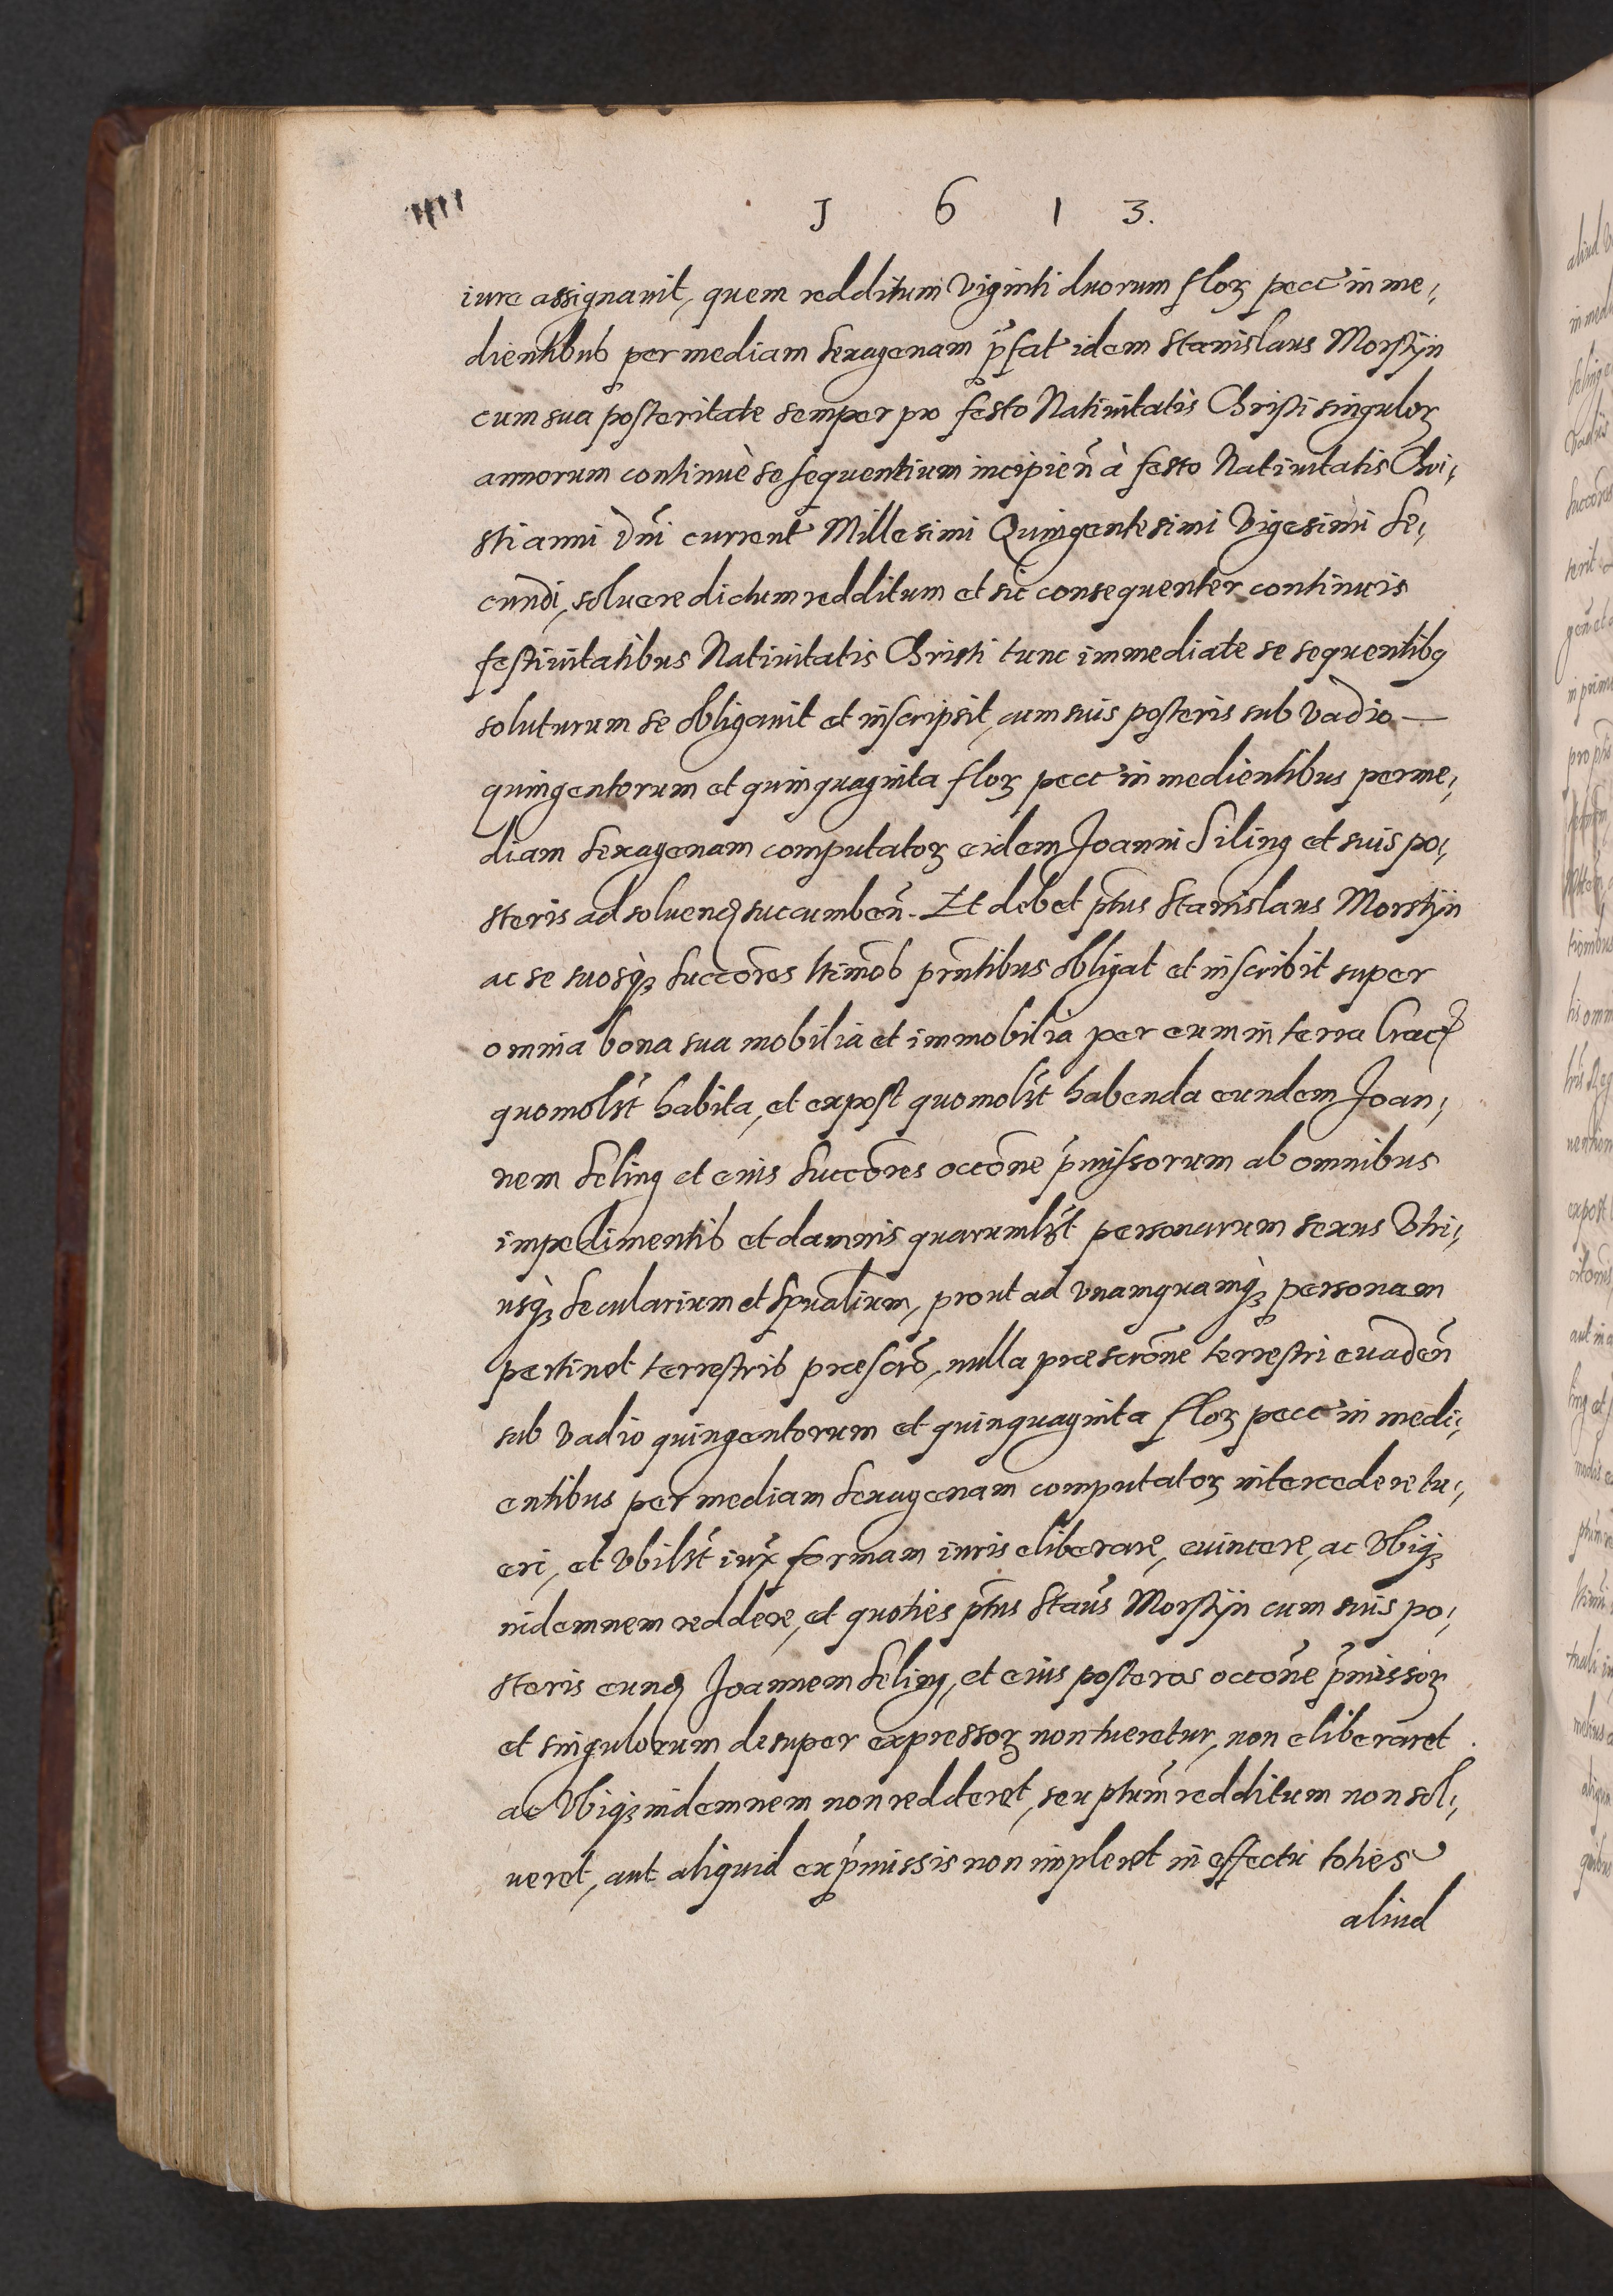 J 6 1 3.
iure assignauit, quem redditum viginti duorum floꝝ pecc in me,
dientibus per mediam sexagenam p̃fat idem Stanislaus Morstÿn
cum sua posteritate semper pro festo Natiuitatis Christi singuloꝝ
annorum continuè se sequentium incipien̄ à festo Natiuitatis Chri,
sti anni Dn̄i current Millesimi Quingentesimi Vigesimi se,
cundi, soluere dictum redditum et sic consequenter continuis
festiuitatibus Natiuitatis Christi tunc immediate se sequentibꝫ
soluturum se obligauit et inscripsit, cum suis posteris sub vadio —
quingentorum et quinquaginta floꝝ pecc in medientibus per me,
diam sexagenam computatoꝝ eidem Joanni Siling et suis po,
steris ad soluenꝰ succumben̄. Et debet ptus Stanislaus Morstÿn
ac se suosqꝫ succores ltimos pn̄tibus obligat et inscribit super
omnia bona sua mobilia et immobilia per eum in terra Crac
quomolꝫt habita, et expost quomolꝫt habenda eundem Joan,
nem Seling et eius succores occōne p̃missorum ab omnibus
impedimentis et damnis quarumlꝫt personarum sexus vtri,
usqꝫ secularium et spūalium, prout ad vnamquamqꝫ personam
pertinet terrestris præscrō, nulla præscrōne terrestri euaden̄
sub vadio quingentorum et quinquaginta floꝝ pecc in medi,
entibus per mediam sexagenam computatoꝝ intercedere tu,
eri, et vbilꝫt iux̄ formam iuris eliberare, euincere, ac vbiqꝫ
indemnem reddere, et quoties ptus Staus Morstÿn cum suis po,
steris eunꝰ Joannem Seling, et eius posteros occōne p̃missoꝝ
et singulorum desuper expressoꝝ non tueretur, non eliberaret
ac vbiqꝫ indemnem non redderet, seu ptum redditum non sol,
ueret, aut aliquid ex p̃missis non impleret in effectu toties
aliud